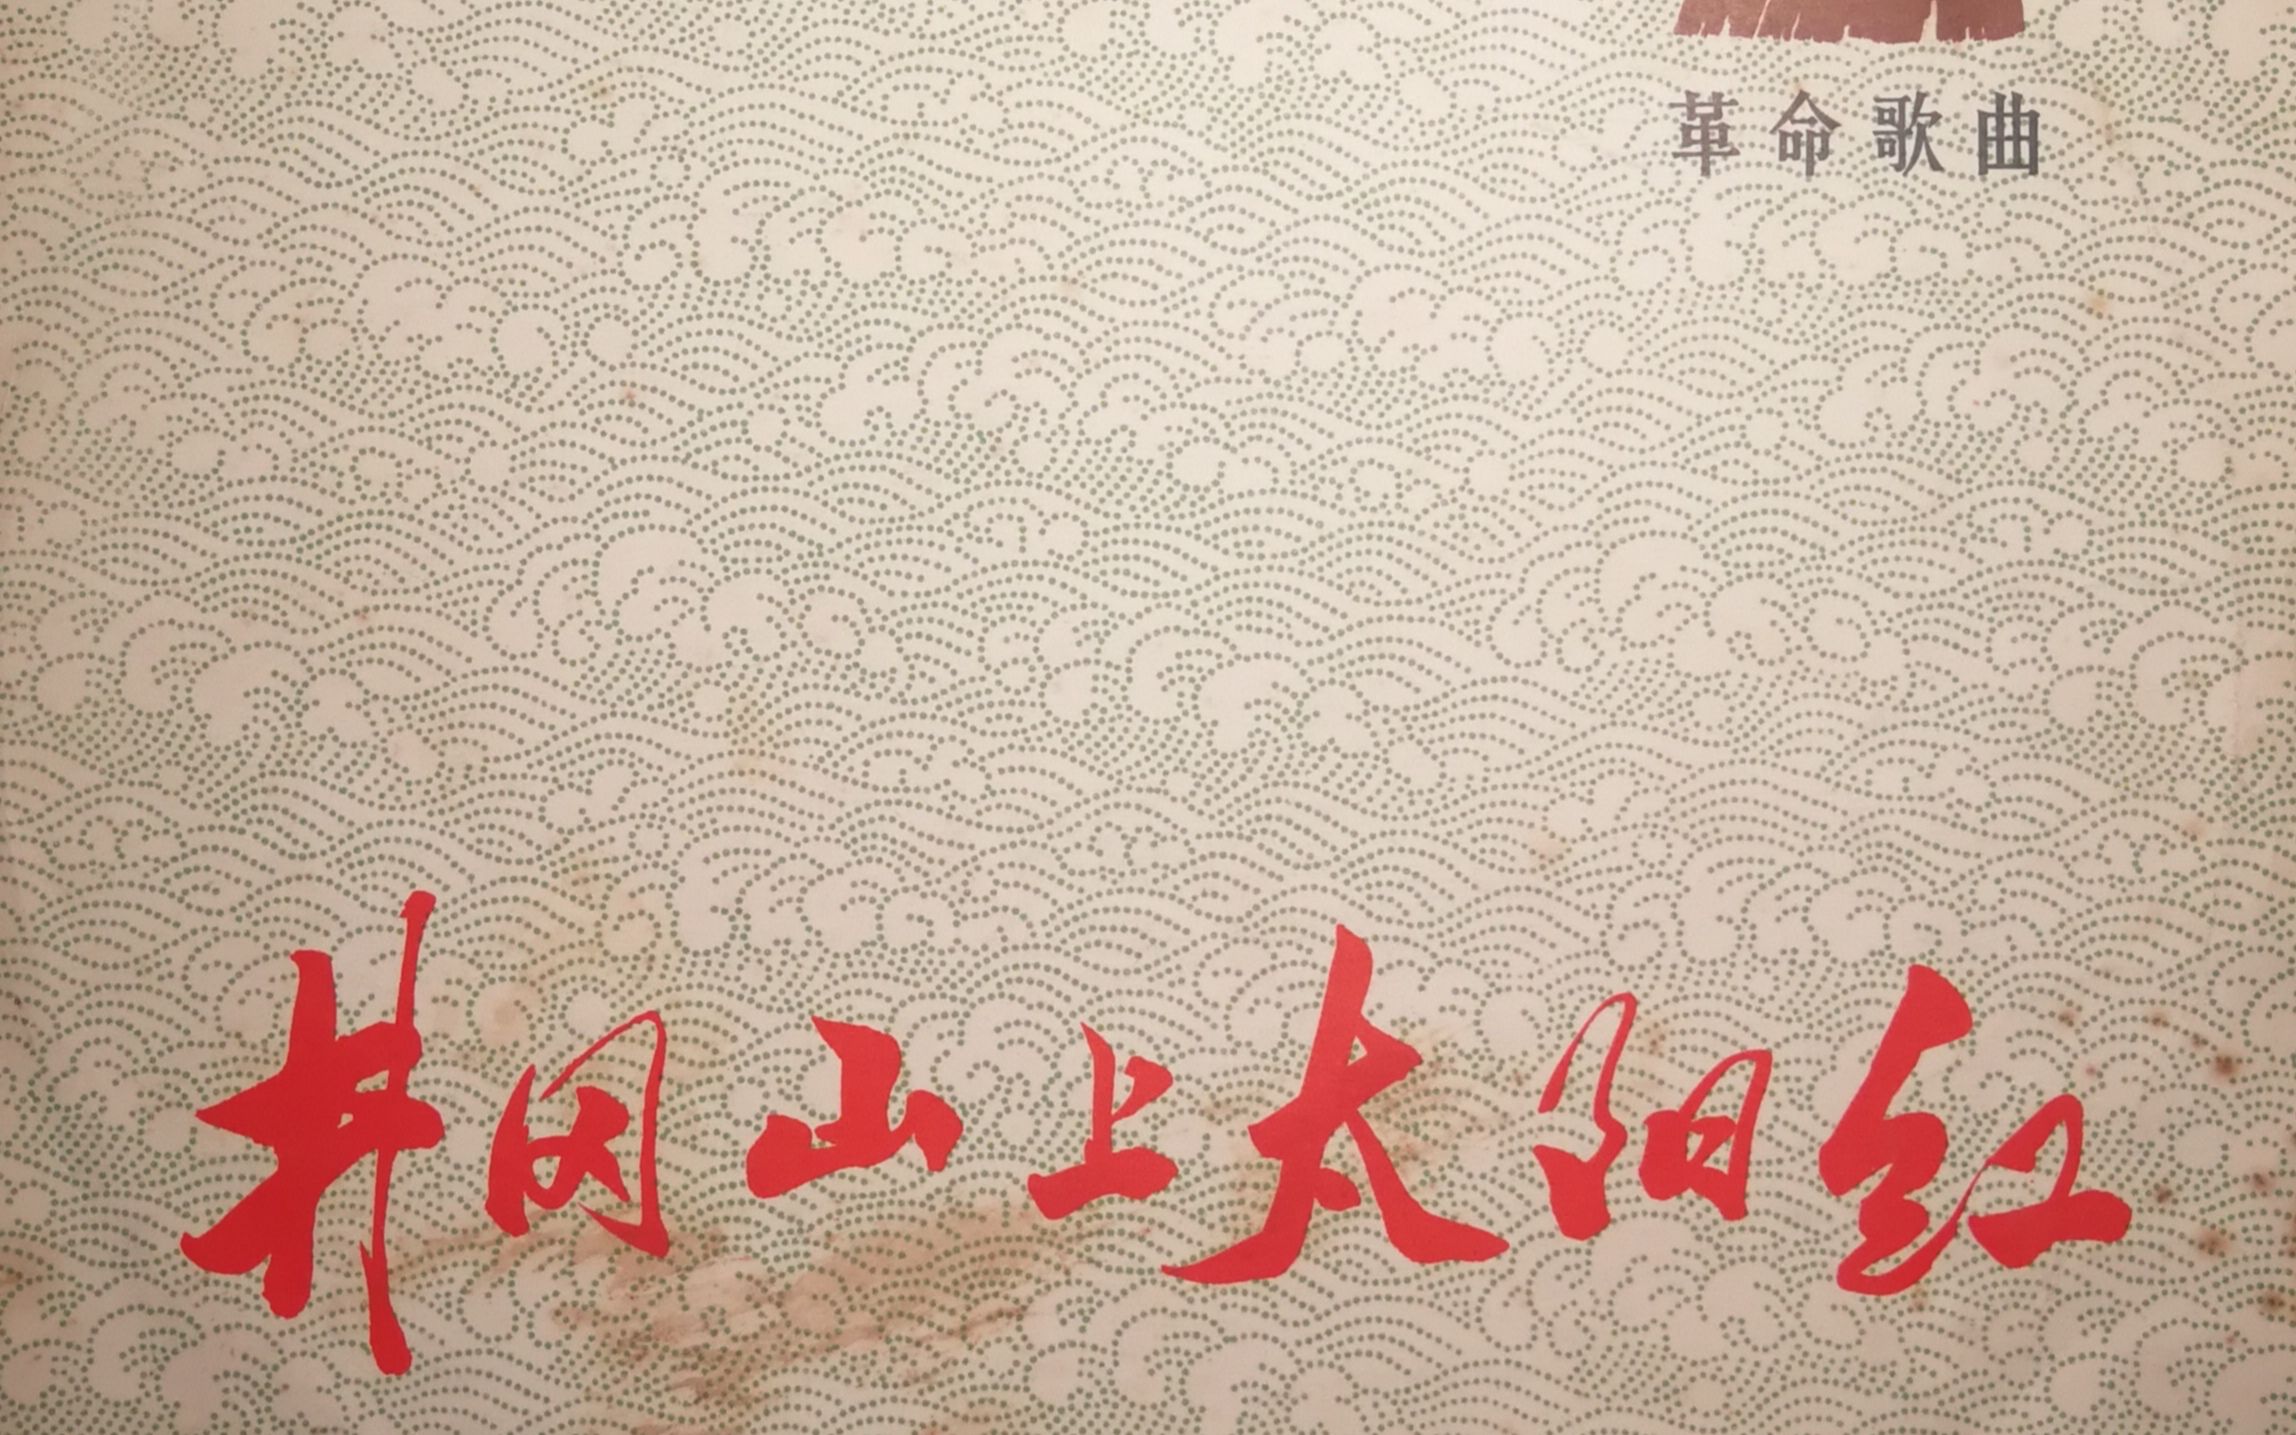 革命歌曲
井冈山上太阳红